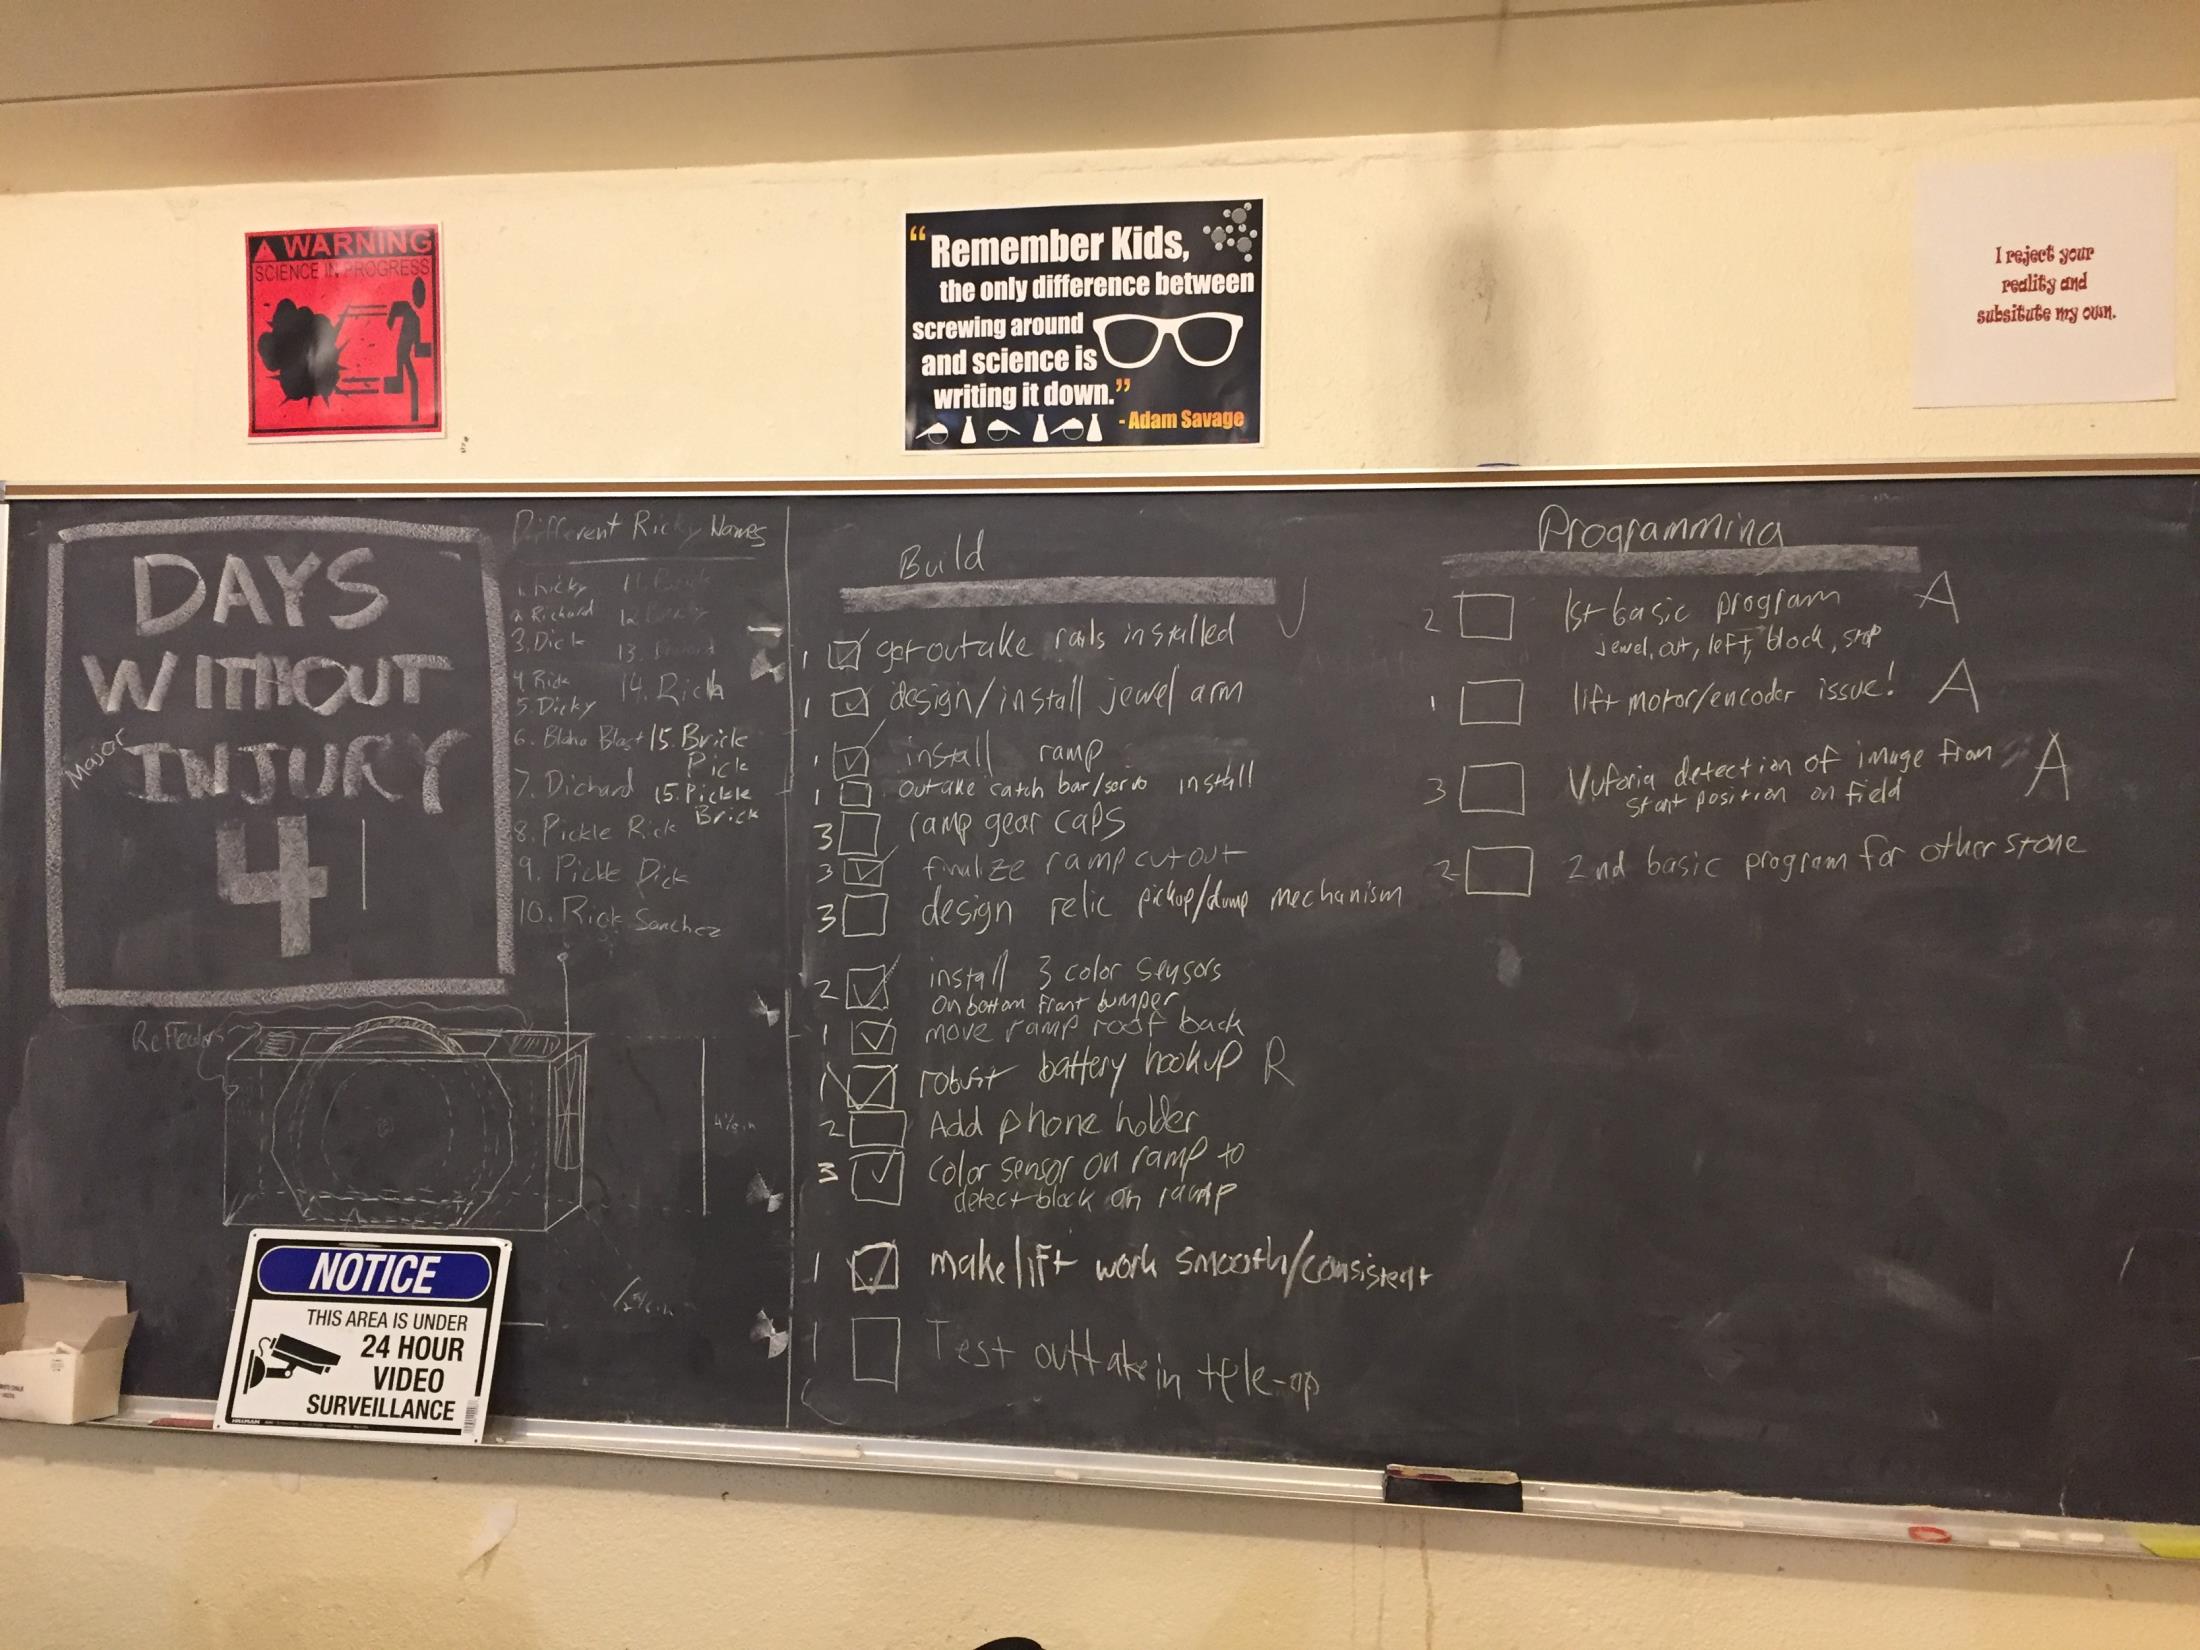 WARNING
SCIENCE IN PROGRESS
“Remember Kids,
the only difference between
screwing around
and science is
writing it down.”
- Adam Savage
I reject your
reality and
subsitute my own.
DAYS
WITHOUT
Major
INJURY
4
Different Ricky Names
1. Ricky
2. Richard
3. Dick
4. Rick
5. Dicky
6. Blaha Blast
7. Dichard
8. Pickle Rick
9. Pickle Dick
10. Rick Sanchez
11.
12.
13.
14. Rich
15. Brick
Pick
15. Pickle
Brick
Reflectors
Build
1 get outake rails installed
1 design/install jewel arm
1 install ramp
1 outake catch bar/servo install
3 ramp gear caps
3 finalize ramp cutout
3 design relic pickup/dump mechanism
2 install 3 color sensors
on bottom front bumper
1 move ramp roof back
1 robust battery hookup R
2 Add phone holder
3 color sensor on ramp to
detect block on ramp
1 make lift work smooth/consistent
1 Test outtake in tele-op
Programming
2 1st basic program A
jewel, out, left, block, stop
1 lift motor/encoder issue! A
3 Vuforia detection of image from A
start position on field
2 2nd basic program for other stone
NOTICE
THIS AREA IS UNDER
24 HOUR
VIDEO
SURVEILLANCE
HILLMAN